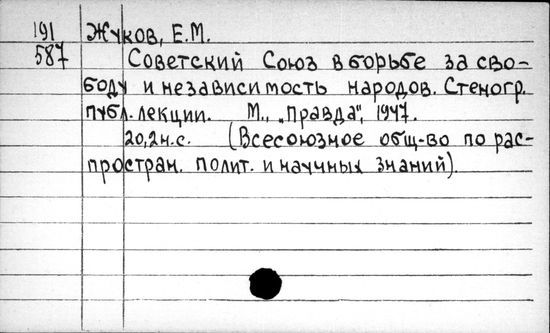 191 Жуков, Е.М.
587 Советский Союз в борьбе за сво-
боду и независимость народов. Стеногр.
публ. лекции. М., „Правда", 1947.
20,2 н.с. (Всесоюзное общ-во по рас-
простран. полит. и научных знаний).